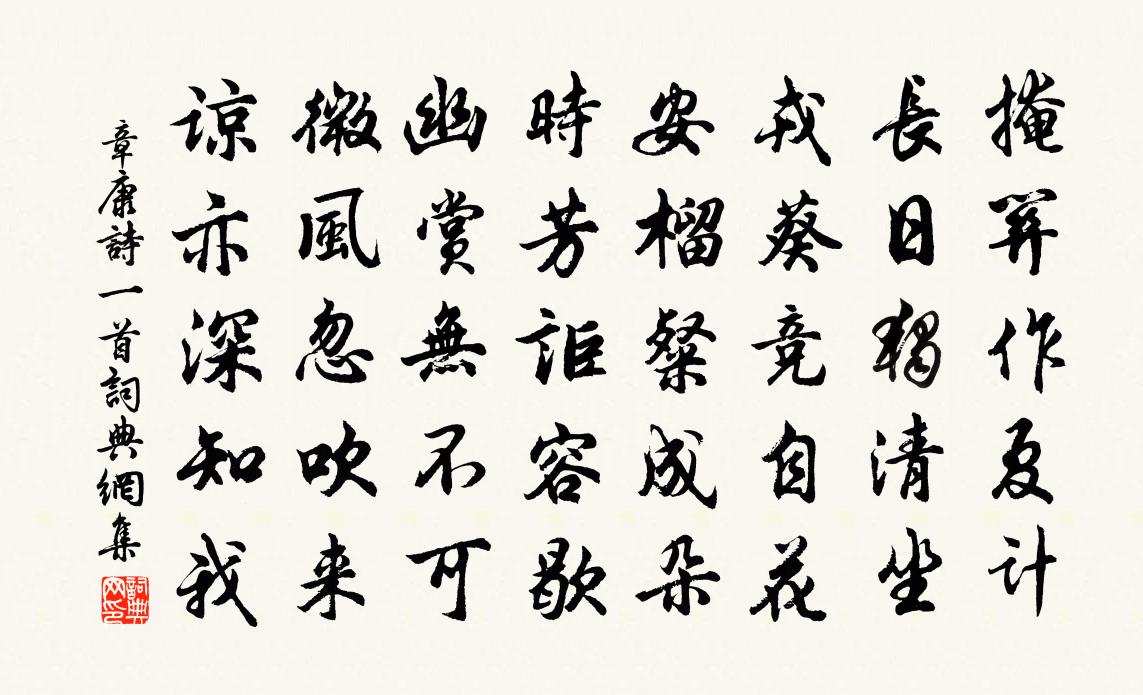 掩關作夏計
長日獨清坐
戎葵竞自花
安榴粲成朵
時芳詎容歇
幽賞無不可
微風忽吹来
諒亦深知我
章康詩一首詞典網集
詞典網印